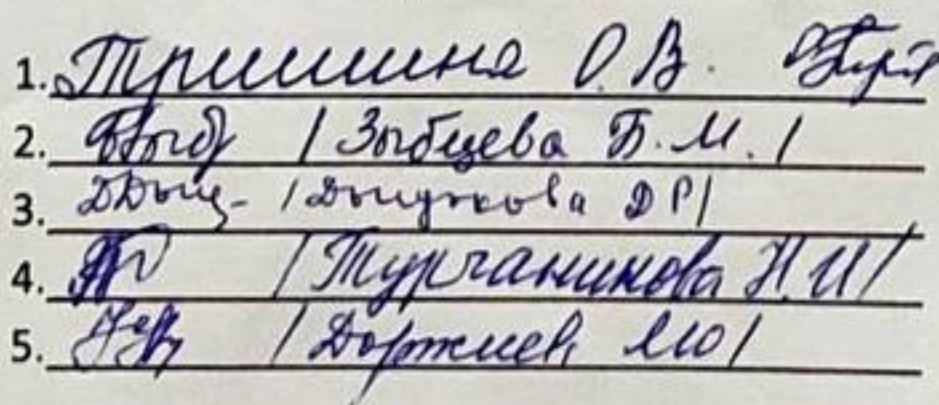 1. Тришина О.В.
2. / Зыбцева Б.М. /
3. / Дындукова ДР/
4. / Турчанинова Н.И/
5. / Доржиев МЮ/